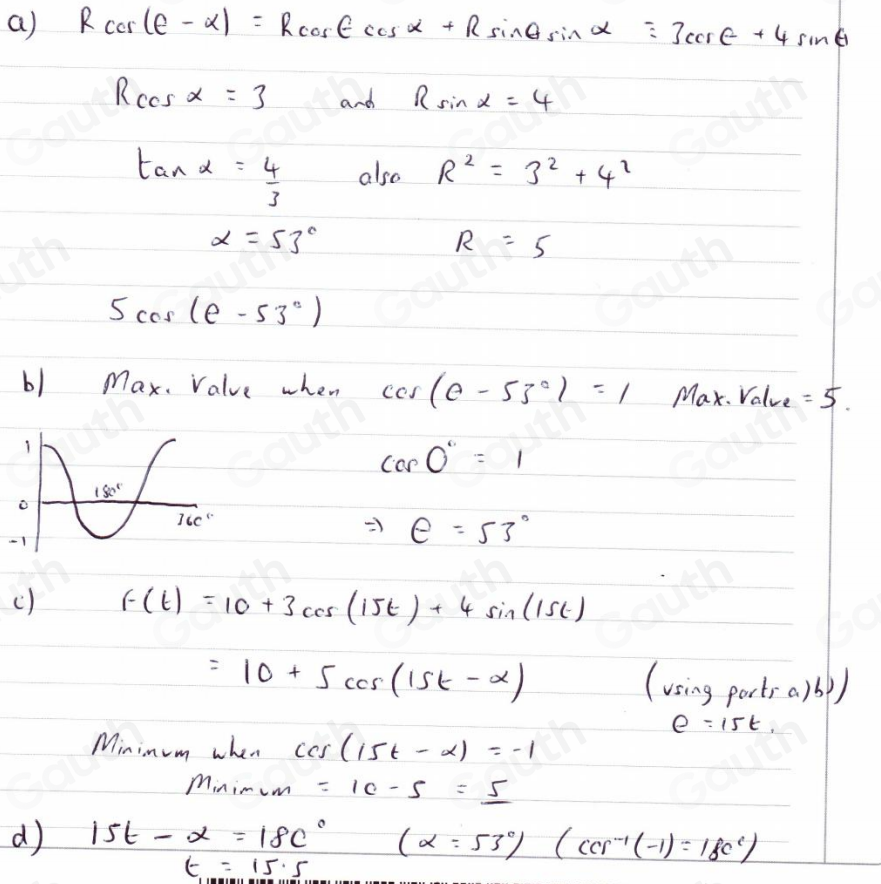 a) R cos(θ - α) = R cosθ cos α + R sinθ sin α ≡ 3cosθ + 4 sinθ
R cos α = 3 and R sin α = 4
tan α = 4/3 also R² = 3² + 4²
α = 53° R = 5
5 cos (θ - 53°)
b) Max. Value when cos (θ - 53°) = 1 Max. Value = 5.
cos 0° = 1
1
180°
0
360°
-1
⇒ θ = 53°
c) F(t) = 10 + 3 cos (15t) + 4 sin (15t)
= 10 + 5 cos (15t - α) (using parts a) b))
θ = 15t.
Minimum when cos (15t - α) = -1
Minimum = 10 - 5 = 5
d) 15t - α = 180° (α = 53°) (cos⁻¹(-1) = 180°)
t = 15.5